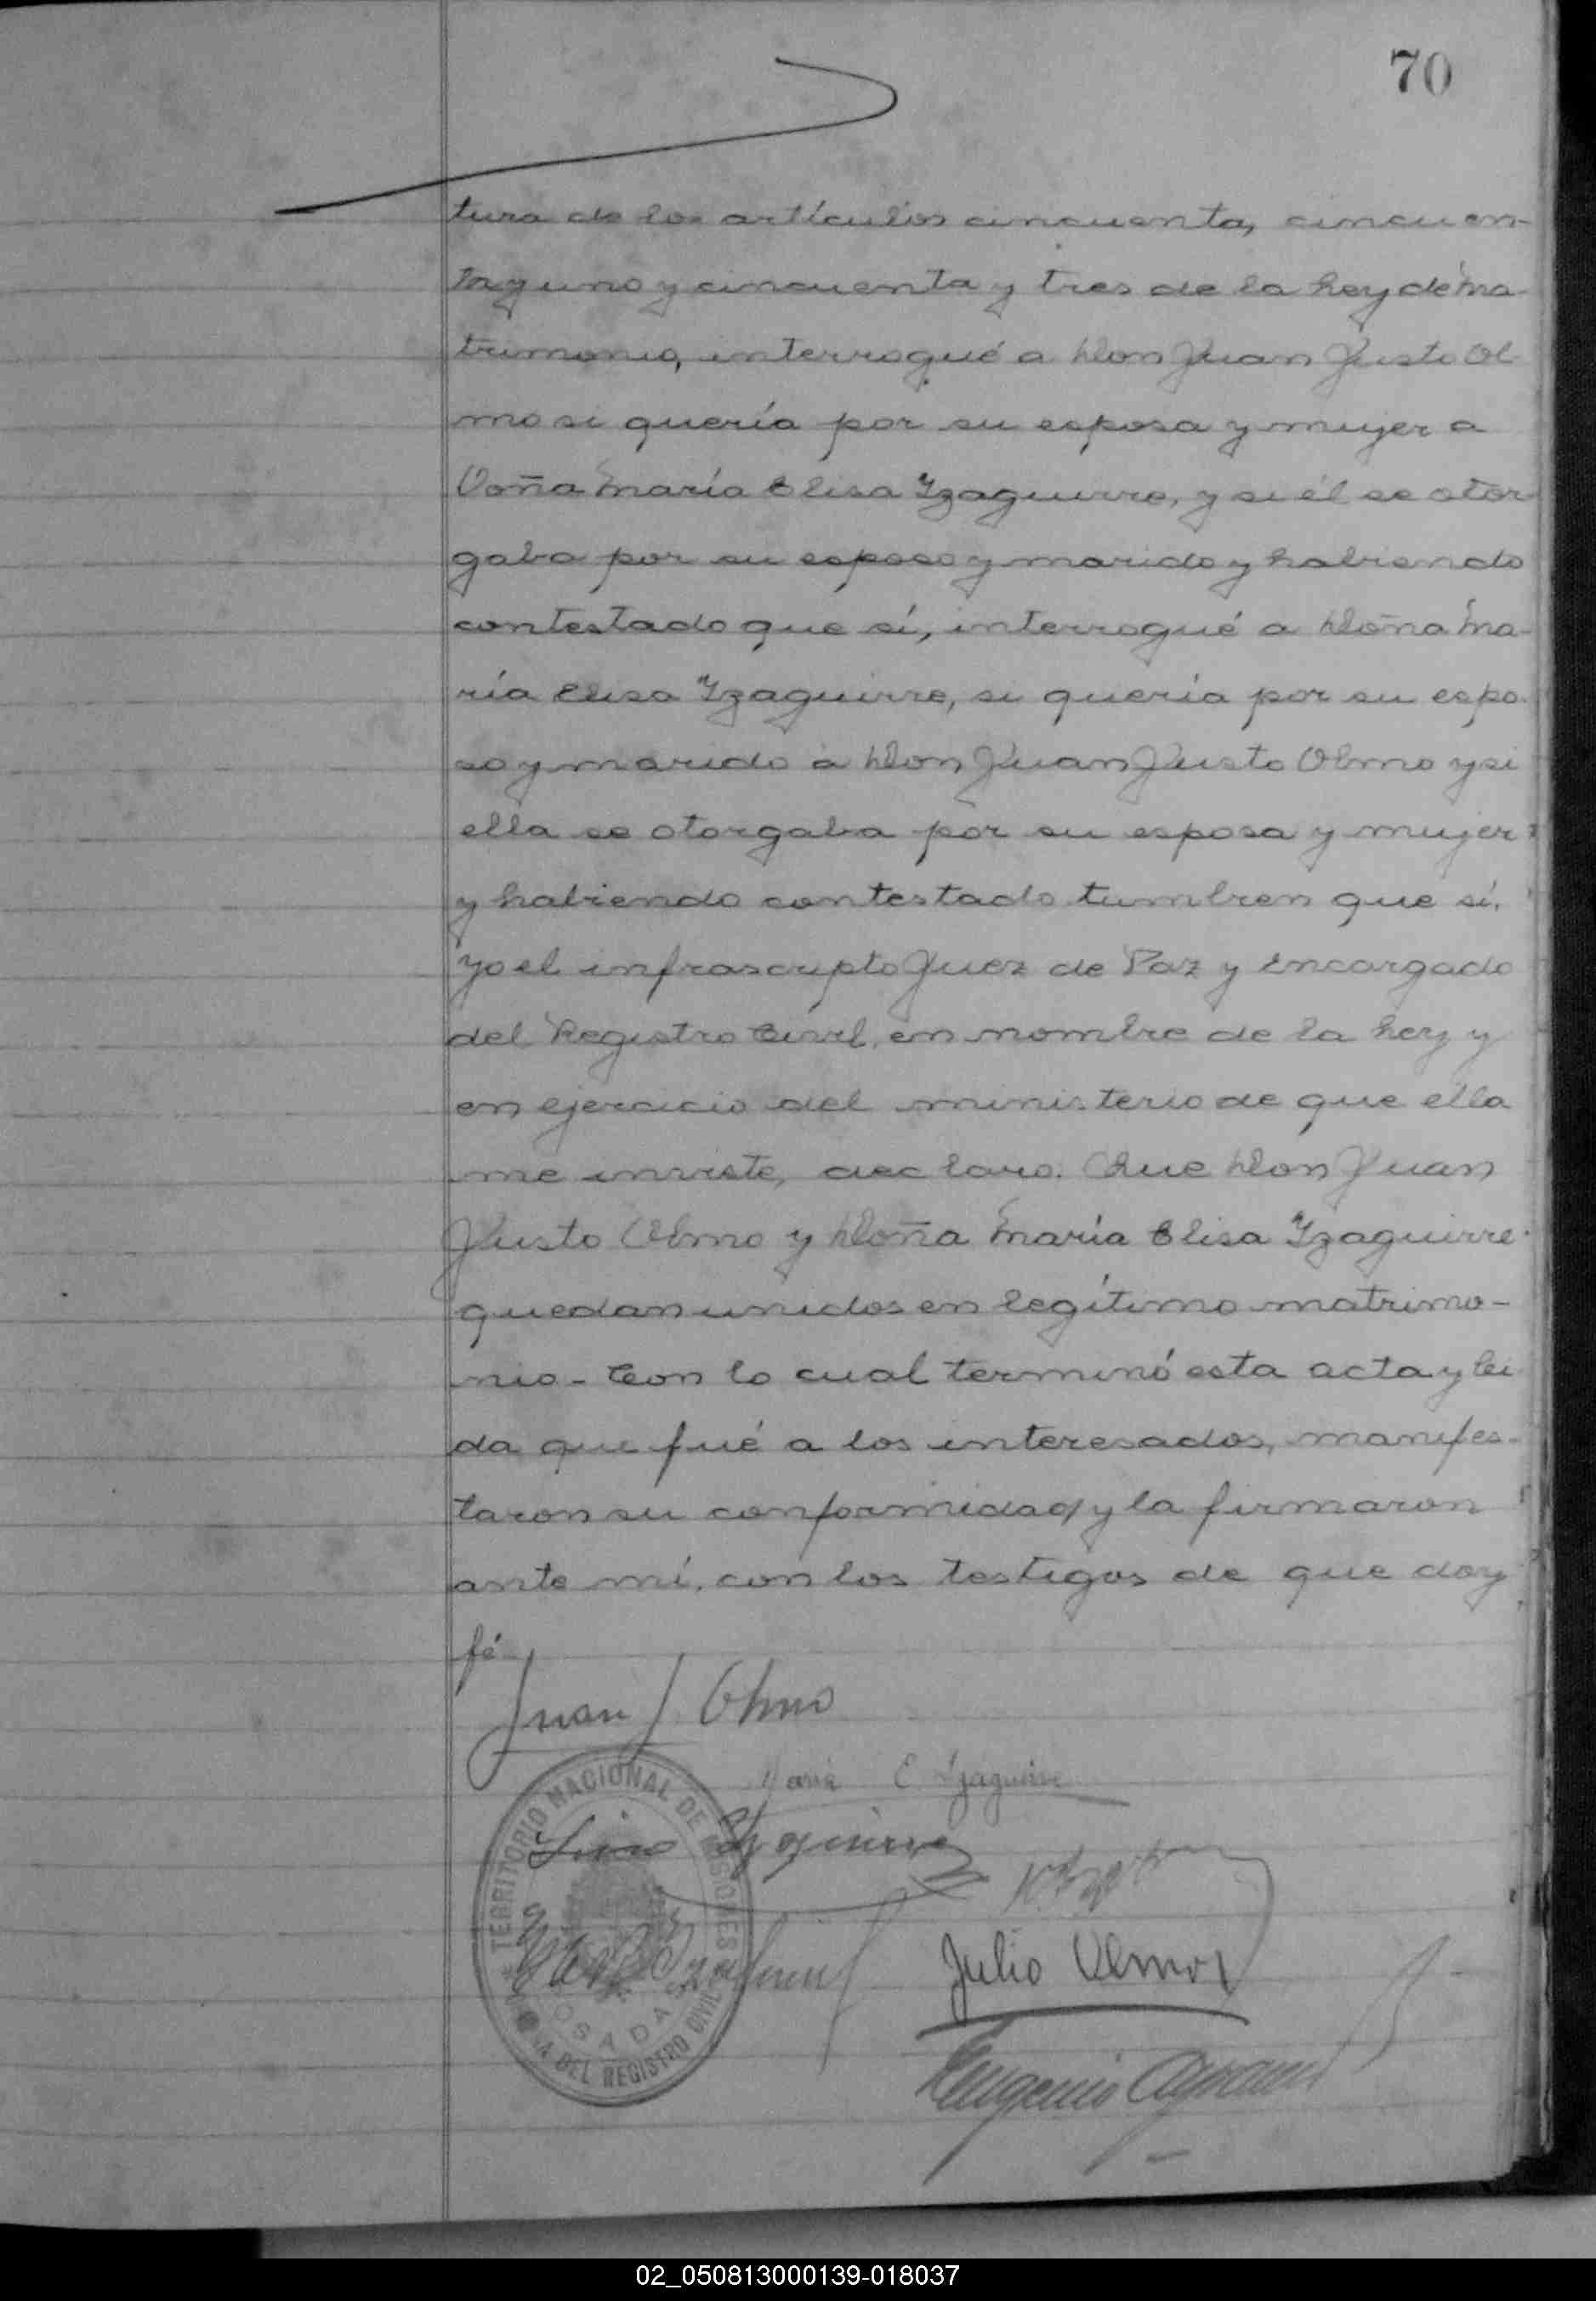 70
tura de los artículos cincuenta, cincuen-
ta y uno y cincuenta y tres de la Ley de Ma-
trimonio, interrogué a Don Juan Justo Ol-
mo si quería por su esposa y mujer a
Doña María Elisa Yzaguirre, y si él se otor
gaba por su esposo y marido y habiendo
contestado que sí, interrogué a Doña Ma-
ría Elisa Yzaguirre, si quería por su espo-
so y marido a Don Juan Justo Olmo y si
ella se otorgaba por su esposa y mujer
y habiendo contestado tumbien que sí.
Yo el infrascripto Juez de Paz y Encargado
del Registro Civil, en nombre de la Ley y
en ejercicio del ministerio de que ella
me inviste, declaro: Que Don Juan
Justo Olmo y Doña María Elisa Yzaguirre
quedan unidos en legítimo matrimo-
nio - Con lo cual terminó esta acta y lei
da que fué a los interesados, manifes-
taron su conformidad y la firmaron
ante mí, con los testigos de que doy
fé.
Juan J. Olmo
María E Yzaguirre
TERRITORIO NACIONAL DE MISIONES
POSADAS
DEL REGISTRO CIVIL
Julio Olmo
Eugenio
02_050813000139-018037